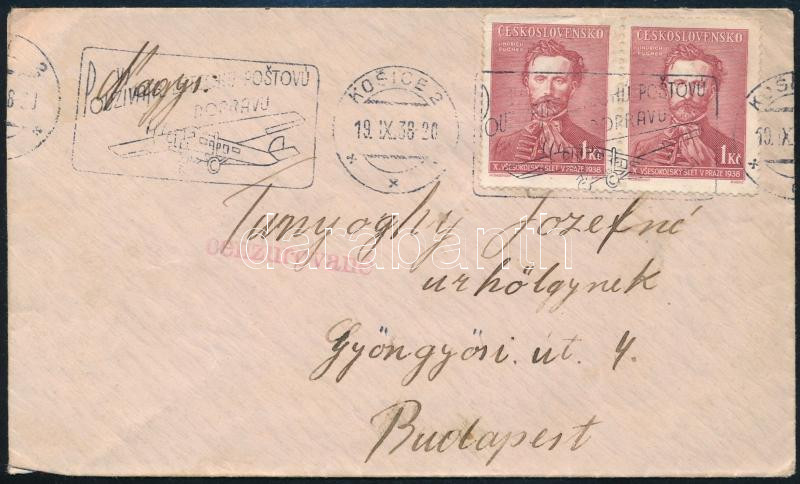 ČESKOSLOVENSKO ČESKOSLOVENSKO
JINDŘICH FÜGNER JINDŘICH FÜGNER
1 Kč 1 Kč
X. VŠESOKOLSKÝ SLET V PRAZE 1938 X. VŠESOKOLSKÝ SLET V PRAZE 1938
POUŽÍVAJTE POŠTOVÚ
DOPRAVU
KOŠICE 2
19.IX.38-20
POŠTOVÚ
DOPRAVU
Nagys.
Tunyoghy Jozefné
cenzurované
darabanth
urhölgynek
Gyöngyösi. út. 4.
Budapest